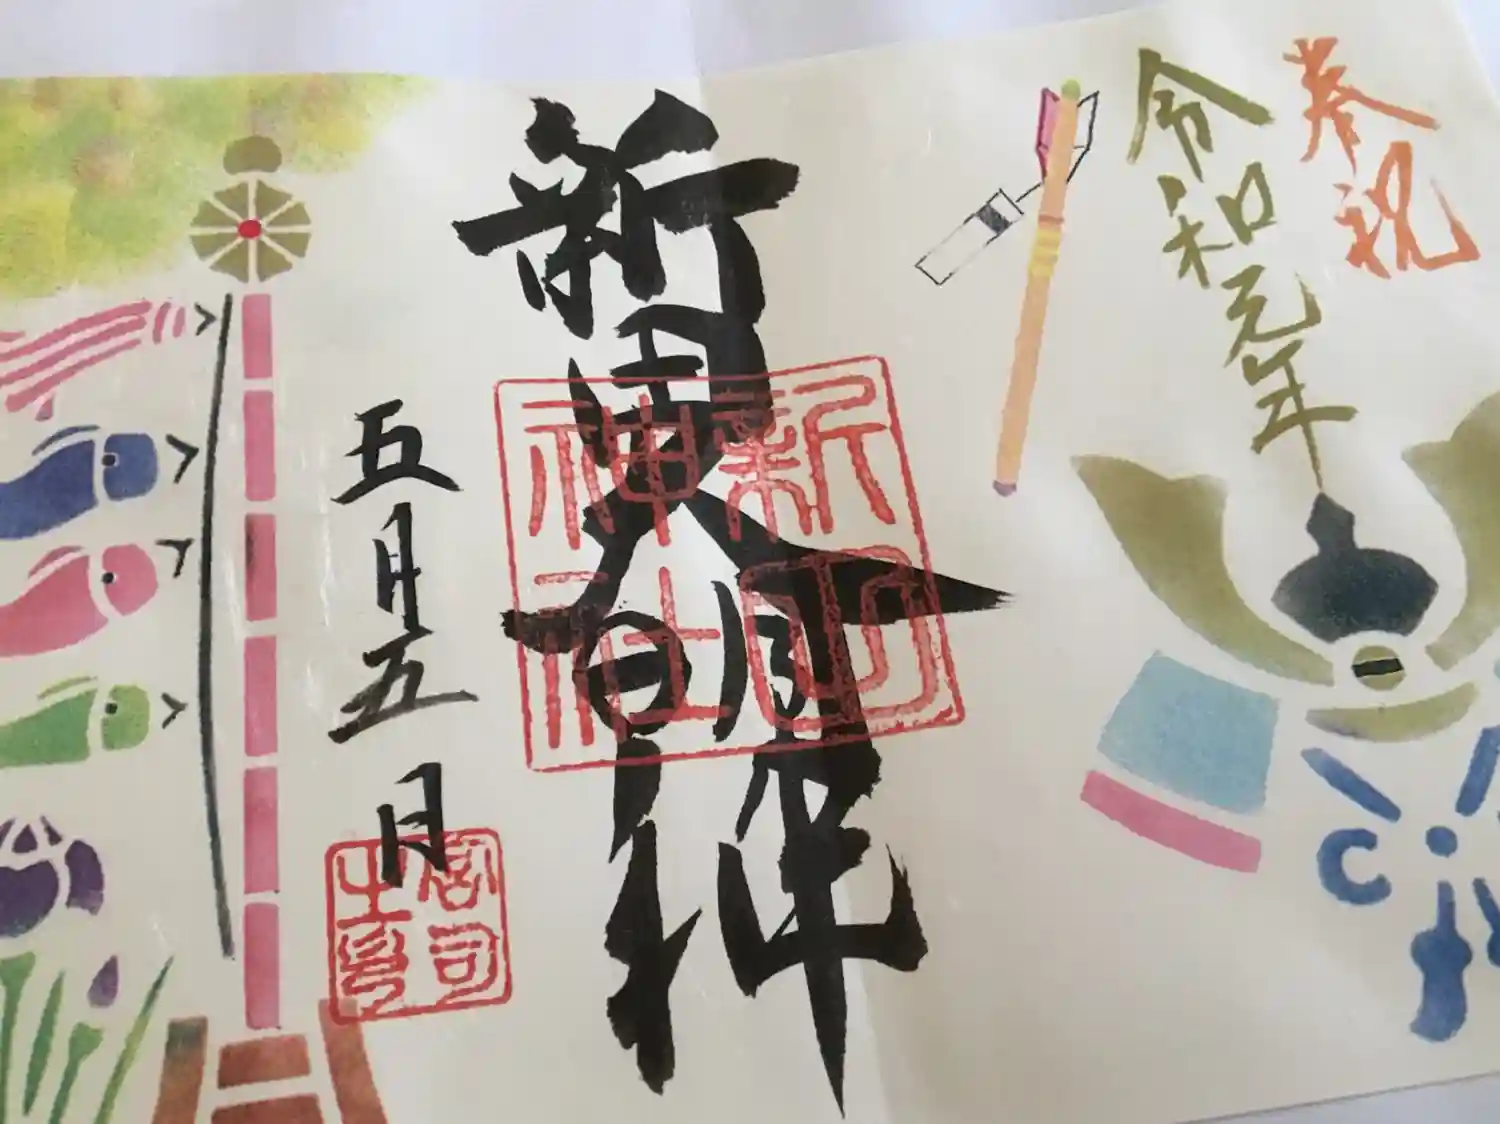 奉祝
令和元年
新田大明神
新田
神社
五月五日
宮司
之印